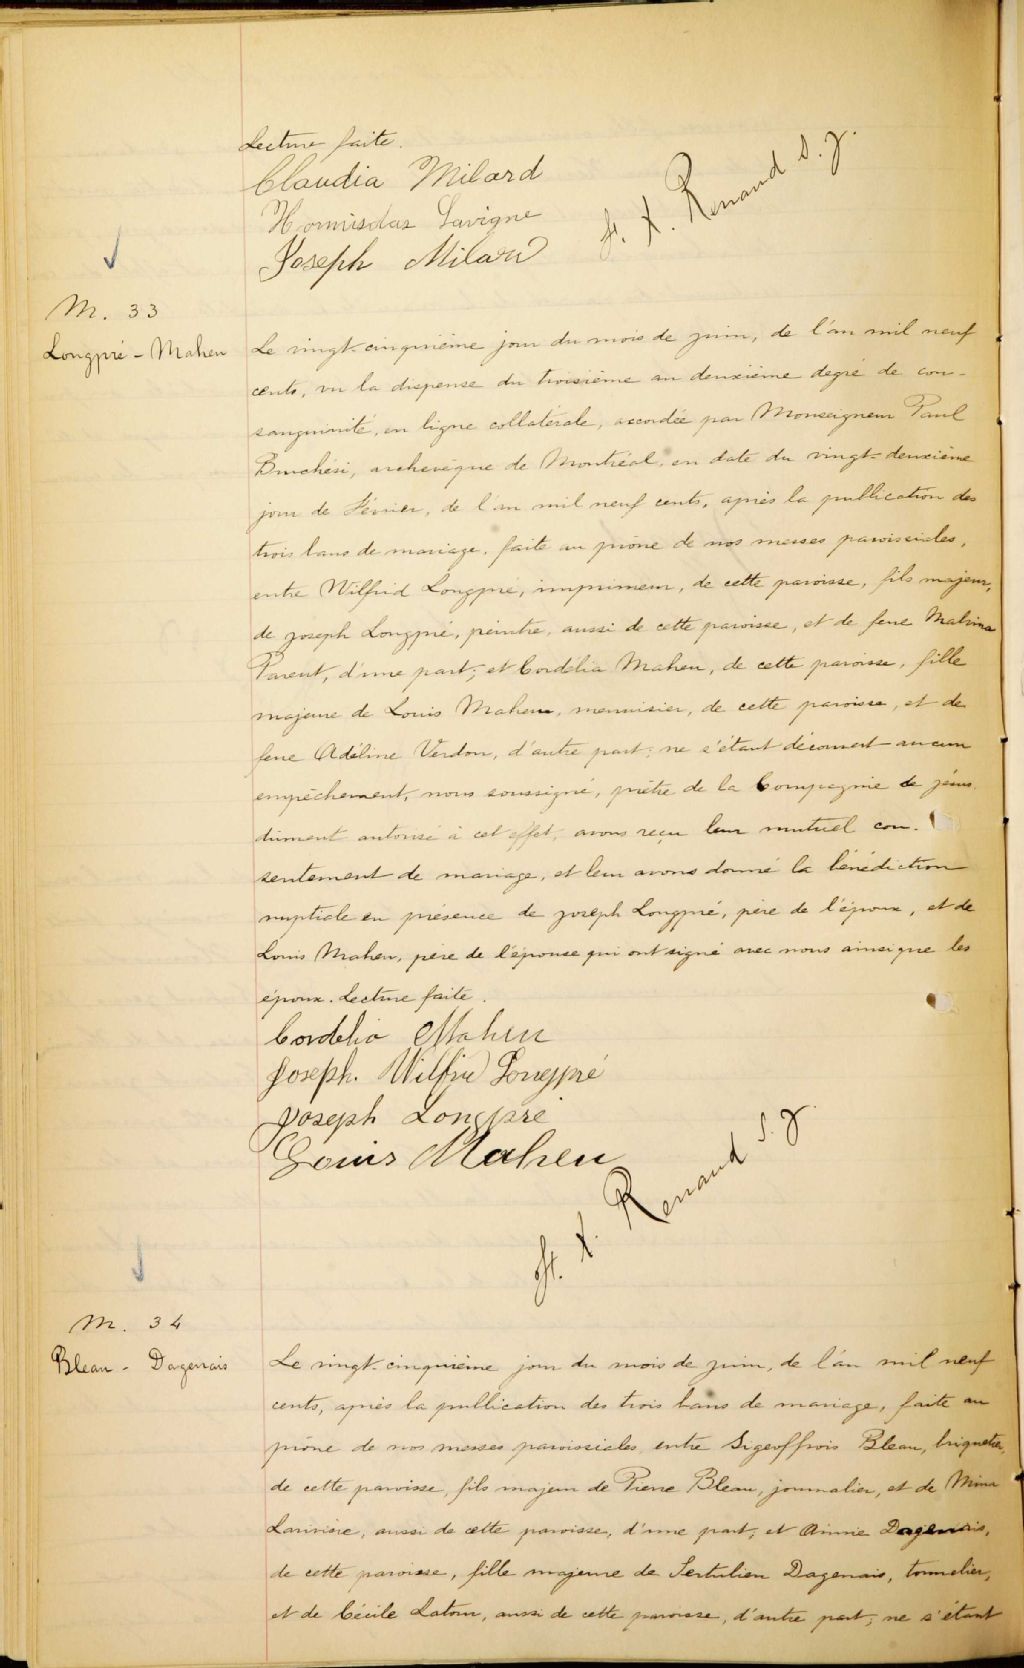 Lecture faite.
Claudia Milard
Hormisdas Lavigne
Joseph Milard
F. X. Renaud s. j.
M. 33
Longpré - Maheu
Le vingt-cinquième jour du mois de juin, de l'an mil neuf
cents, vu la dispense du troisième au deuxième degré de con-
sanguinité, en ligne collatérale, accordée par Monseigneur Paul
Bruchési, archevêque de Montréal, en date du vingt-deuxième
jour de Février, de l'an mil neuf cents, après la publication des
trois bans de mariage, faite au prône de nos messes paroissiales,
entre Wilfrid Longpré, imprimeur, de cette paroisse, fils majeur,
de Joseph Longpré, peintre, aussi de cette paroisse, et de feue Malvina
Parent, d'une part; et Cordélia Maheu, de cette paroisse, fille
majeure de Louis Maheu, menuisier, de cette paroisse, et de
feue Adéline Verdon, d'autre part; ne s'étant découvert aucun
empêchement, nous soussigné, prêtre de la Compagnie de Jésus
dûment autorisé à cet effet, avons reçu leur mutuel con-
sentement de mariage, et leur avons donné la bénédiction
nuptiale en présence de Joseph Longpré, père de l'époux, et de
Louis Maheu, père de l'épouse qui ont signé avec nous ainsi que les
époux. Lecture faite.
Cordelia Maheu
Joseph. Wilfrid Longpré
Joseph Longpré
Louis Maheu
F. X. Renaud s. j.
M. 34
Bleau - Dagenais
Le vingt-cinquième jour du mois de juin, de l'an mil neuf
cents, après la publication des trois bans de mariage, faite au
prône de nos messes paroissiales, entre Sigeoffrois Bleau, briquetier,
de cette paroisse, fils majeur de Pierre Bleau, journalier, et de Mina
Larivière, aussi de cette paroisse, d'une part; et Annie Dagenais,
de cette paroisse, fille majeure de Tertulien Dagenais, tonnelier,
et de Cécile Latour, aussi de cette paroisse, d'autre part; ne s'étant